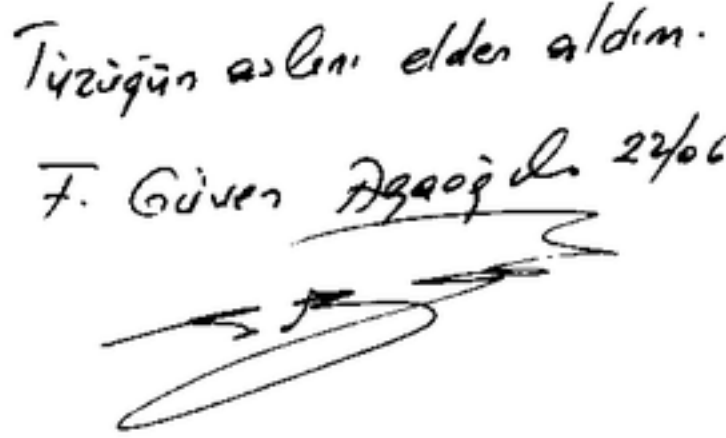 Tüzüğün aslını elden aldım.
F. Güven Ağaoğlu 22/06